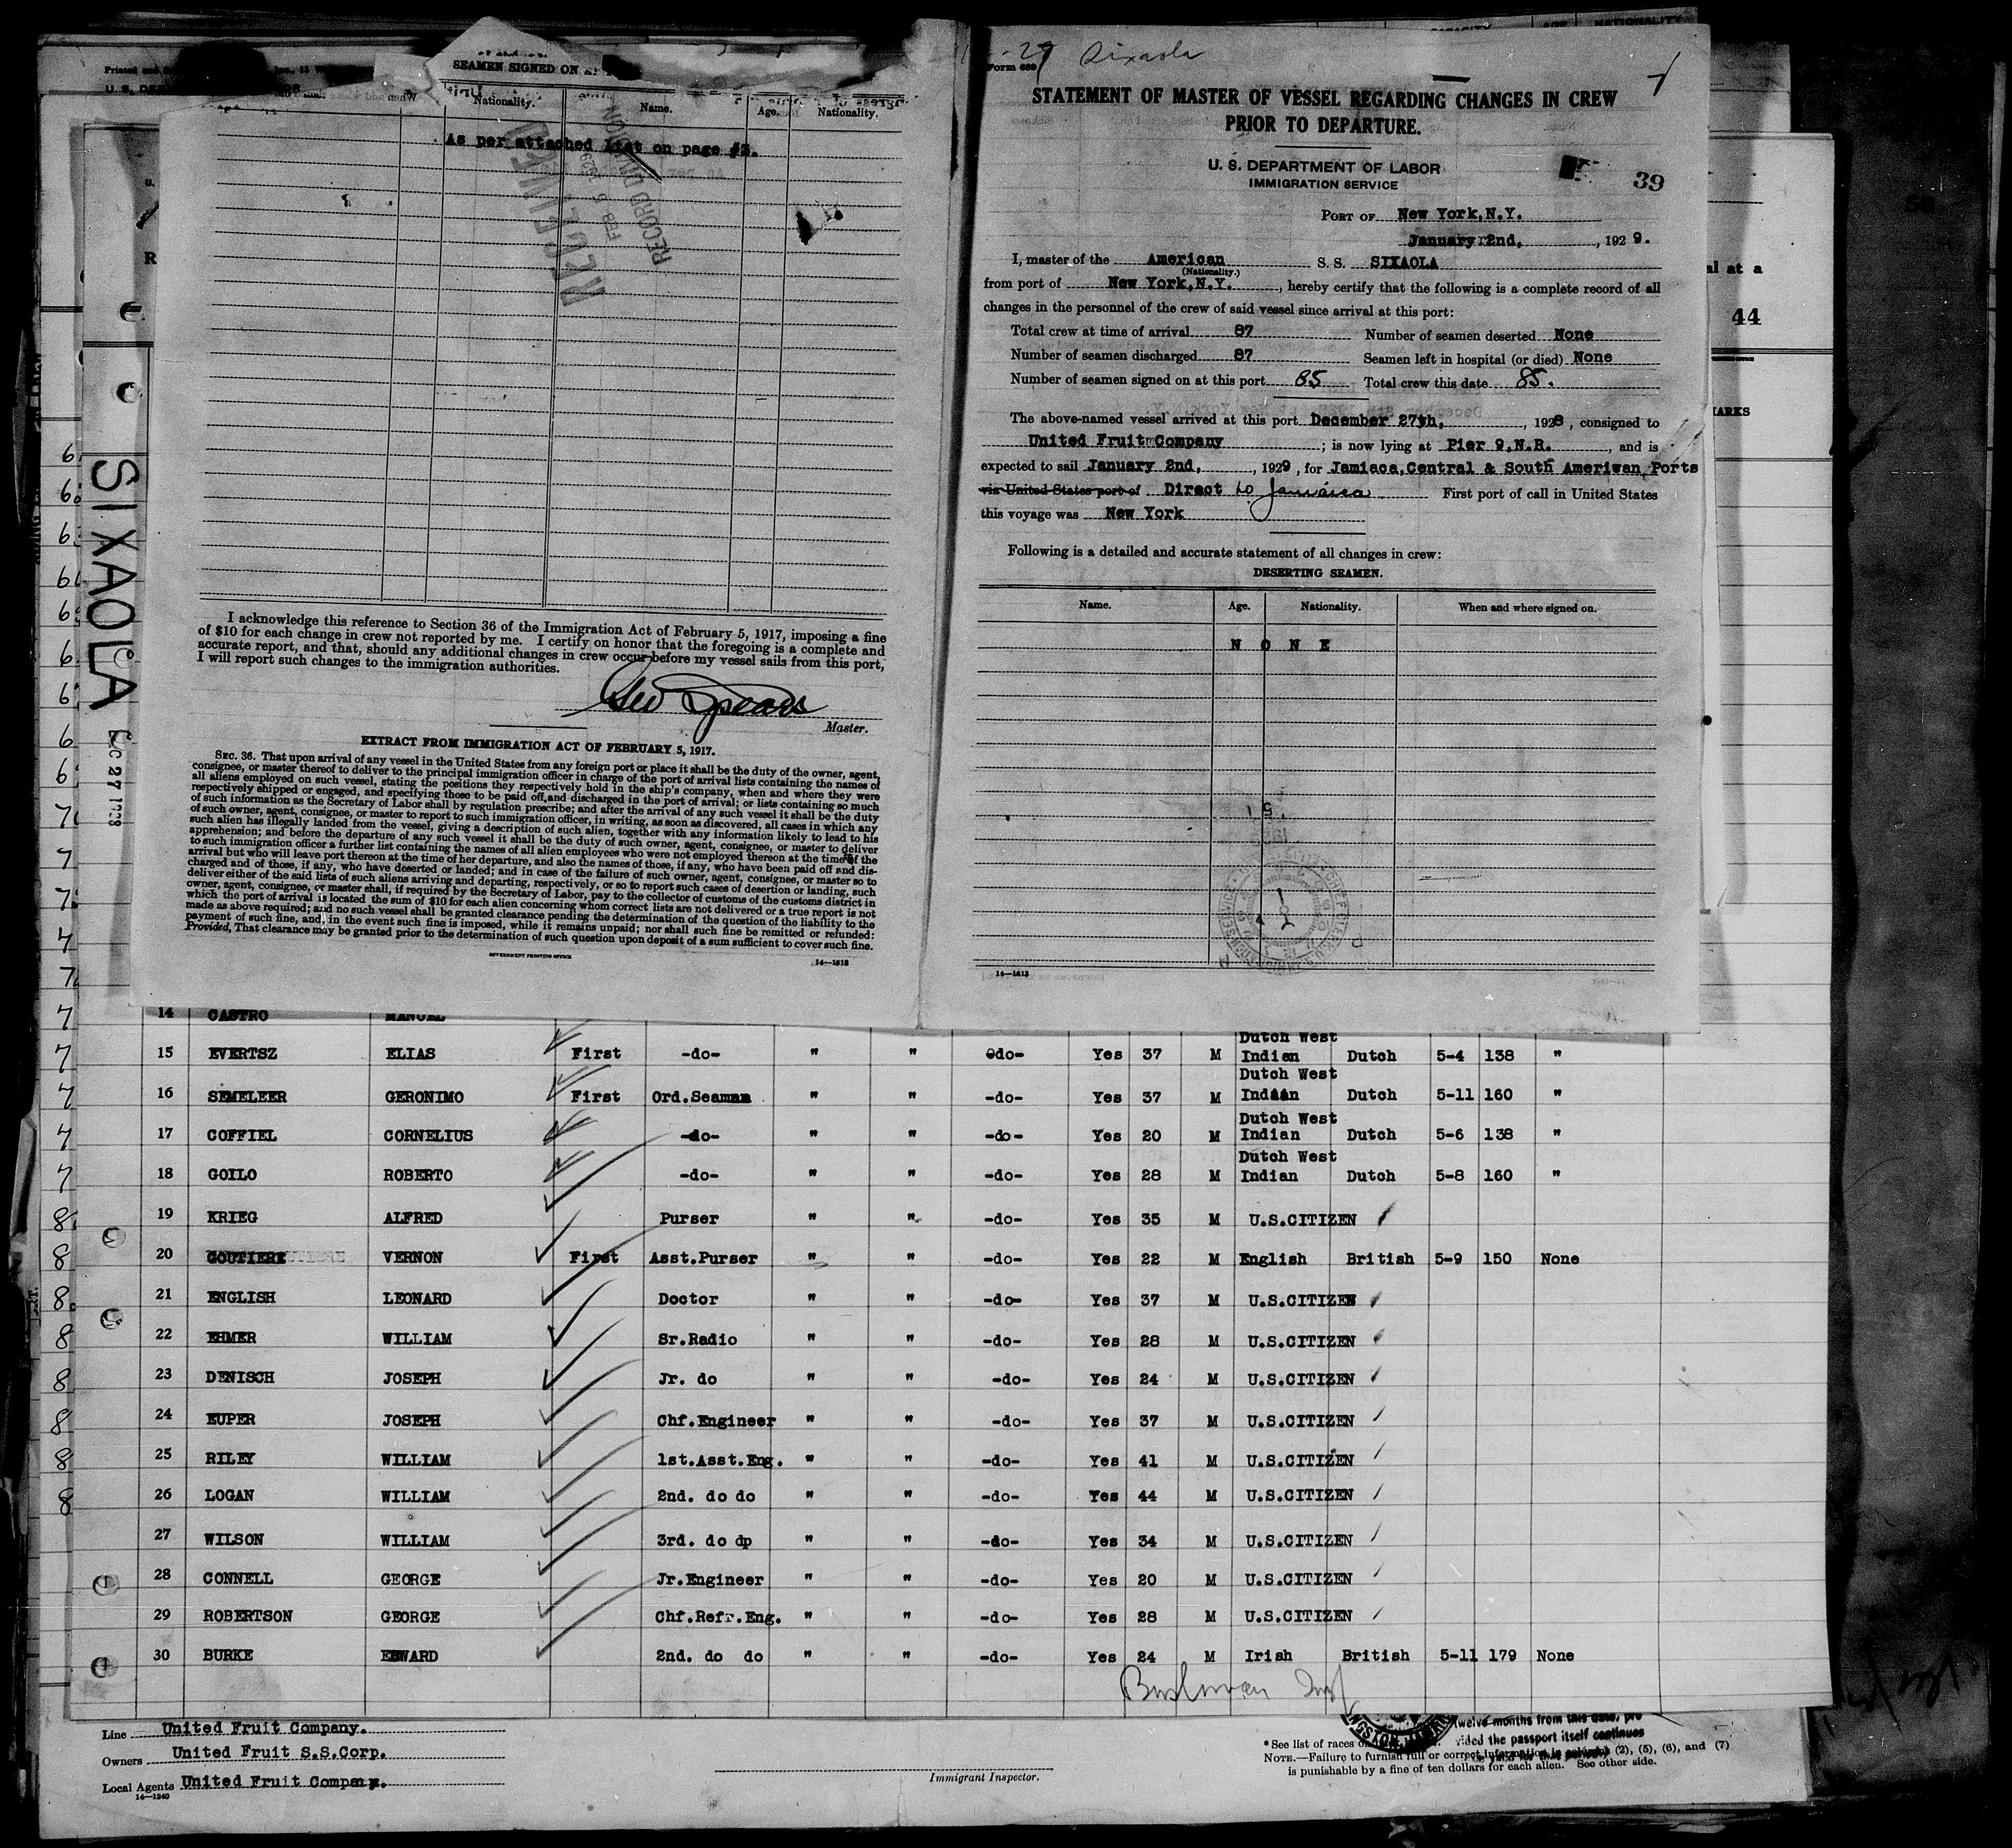 SEAMEN SIGNED ON
Nationality. Name. Age. Nationality.
As per attached list on page #3.
RECEIVED
FEB 5 1929
RECORD DIVISION
I acknowledge this reference to Section 36 of the Immigration Act of February 5, 1917, imposing a fine
of $10 for each change in crew not reported by me. I certify on honor that the foregoing is a complete and
accurate report, and that, should any additional changes in crew occur before my vessel sails from this port,
I will report such changes to the immigration authorities.
Geo Spears
Master.
EXTRACT FROM IMMIGRATION ACT OF FEBRUARY 5, 1917.
SEC. 36. That upon arrival of any vessel in the United States from any foreign port or place it shall be the duty of the owner, agent,
consignee, or master thereof to deliver to the principal immigration officer in charge of the port of arrival lists containing the names of
all aliens employed on such vessel, stating the positions they respectively hold in the ship's company, when and where they were
respectively shipped or engaged, and specifying those to be paid off and discharged in the port of arrival; or lists containing so much
of such information as the Secretary of Labor shall by regulation prescribe; and after the arrival of any such vessel it shall be the duty
of such owner, agent, consignee, or master to report to such immigration officer, in writing, as soon as discovered, all cases in which any
such alien has illegally landed from the vessel, giving a description of such alien, together with any information likely to lead to his
apprehension; and before the departure of any such vessel it shall be the duty of such owner, agent, consignee, or master to deliver
to such immigration officer a further list containing the names of all alien employees who were not employed thereon at the time of the
arrival but who will leave port thereon at the time of her departure, and also the names of those, if any, who have been paid off and dis-
charged and of those, if any, who have deserted or landed; and in case of the failure of such owner, agent, consignee, or master so to
deliver either of the said lists of such aliens arriving and departing, respectively, or so to report such cases of desertion or landing, such
owner, agent, consignee, or master shall, if required by the Secretary of Labor, pay to the collector of customs of the customs district in
which the port of arrival is located the sum of $10 for each alien concerning whom correct lists are not delivered or a true report is not
made as above required; and no such vessel shall be granted clearance pending the determination of the question of the liability to the
payment of such fine, and, in the event such fine is imposed, while it remains unpaid; nor shall such fine be remitted or refunded:
Provided, That clearance may be granted prior to the determination of such question upon deposit of a sum sufficient to cover such fine.
GOVERNMENT PRINTING OFFICE
14—1613
Sixaola
Form 689
STATEMENT OF MASTER OF VESSEL REGARDING CHANGES IN CREW
PRIOR TO DEPARTURE.
U. S. DEPARTMENT OF LABOR
IMMIGRATION SERVICE
39
PORT OF New York,N.Y.
January 2nd, , 1929.
I, master of the American S. S. SIXAOLA
(Nationality.)
from port of New York,N.Y. , hereby certify that the following is a complete record of all
changes in the personnel of the crew of said vessel since arrival at this port:
Total crew at time of arrival 87 Number of seamen deserted None
Number of seamen discharged 87 Seamen left in hospital (or died) None
Number of seamen signed on at this port 85 Total crew this date 85.
The above-named vessel arrived at this port December 27th, , 1928, consigned to
United Fruit Company ; is now lying at Pier 9,N.R. , and is
expected to sail January 2nd, , 1929, for Jamiaca,Central & South Ameriwan Ports
via United States port of Direct to Jamaica First port of call in United States
this voyage was New York
Following is a detailed and accurate statement of all changes in crew:
DESERTING SEAMEN.
Name. Age. Nationality. When and where signed on.
N O N E
14—1613
44
SIXAOLA
DEC 27 1928
14 CASTRO MANUEL
15 EVERTSZ ELIAS First -do- " " -do- Yes 37 M Dutch West Indian Dutch 5-4 138 "
16 SEMELEER GERONIMO First Ord.Seaman " " -do- Yes 37 M Dutch West Indian Dutch 5-11 160 "
17 COFFIEL CORNELIUS -do- " " -do- Yes 20 M Dutch West Indian Dutch 5-6 138 "
18 GOILO ROBERTO -do- " " -do- Yes 28 M Dutch West Indian Dutch 5-8 160 "
19 KRIEG ALFRED Purser " " -do- Yes 35 M U.S.CITIZEN
20 GOUTIERE VERNON First Asst.Purser " " -do- Yes 22 M English British 5-9 150 None
21 ENGLISH LEONARD Doctor " " -do- Yes 37 M U.S.CITIZEN
22 EHMER WILLIAM Sr.Radio " " -do- Yes 28 M U.S.CITIZEN
23 DENISCH JOSEPH Jr. do " " -do- Yes 24 M U.S.CITIZEN
24 EUPER JOSEPH Chf.Engineer " " -do- Yes 37 M U.S.CITIZEN
25 RILEY WILLIAM 1st.Asst.Eng. " " -do- Yes 41 M U.S.CITIZEN
26 LOGAN WILLIAM 2nd. do do " " -do- Yes 44 M U.S.CITIZEN
27 WILSON WILLIAM 3rd. do dp " " -do- Yes 34 M U.S.CITIZEN
28 CONNELL GEORGE Jr.Engineer " " -do- Yes 20 M U.S.CITIZEN
29 ROBERTSON GEORGE Chf.Refr.Eng. " " -do- Yes 28 M U.S.CITIZEN
30 BURKE EDWARD 2nd. do do " " -do- Yes 24 M Irish British 5-11 179 None
Line United Fruit Company.
Owners United Fruit S.S.Corp.
Local Agents United Fruit Company.
14—1240
Immigrant Inspector.
twelve months from this date, pro
vided the passport itself continues
*See list of races
NOTE.—Failure to furnish full or correct information in (2), (5), (6), and (7)
is punishable by a fine of ten dollars for each alien. See other side.